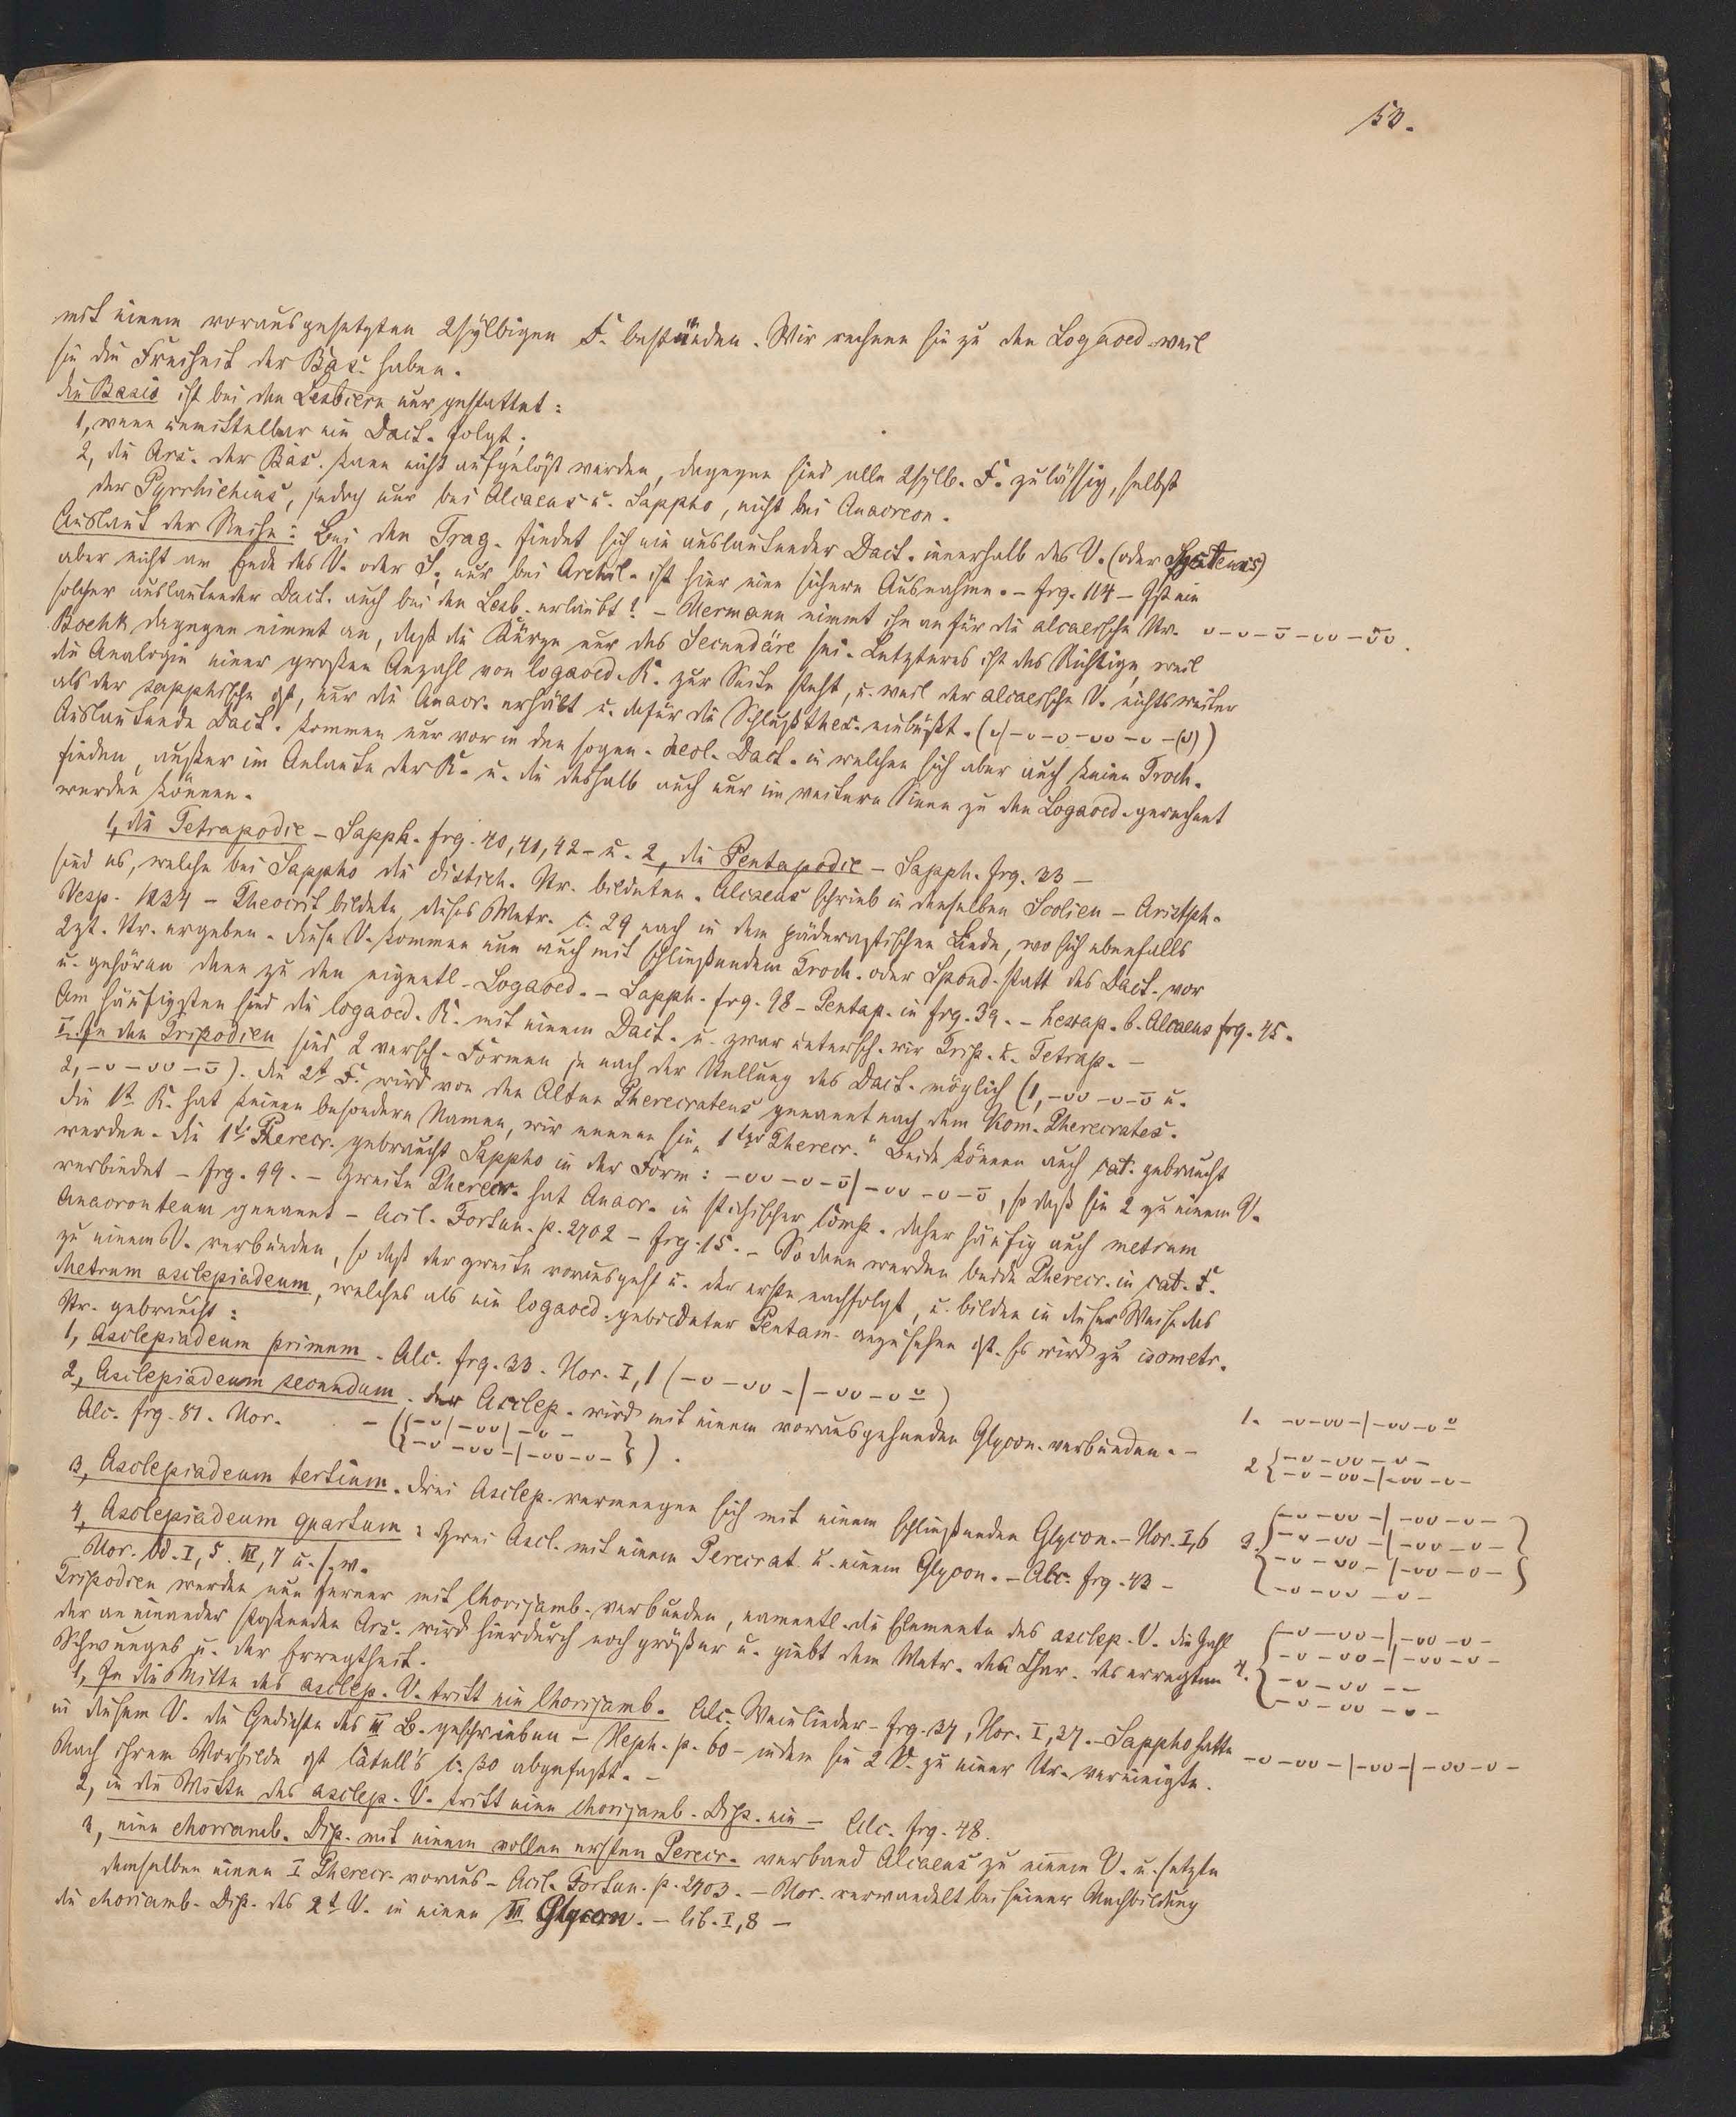 53.
mit einem vorausgesetzten 2sylbigen F. bestünden. Wir rechnen sie zu den Logaoed. weil
sie die Freiheit der Bas. haben.
die Basis ist bei den Lesbiern nur gestattet:
1, wenn unmittelbar ein Dact. folgt;
2, die Ars. der Bas. kann nicht aufgelöst werden, dagegen sind alle 2sylb. F. zulässig, selbst
der Pyrrhichius, jedoch nur bei Alcaeus u. Sappho, nicht bei Anacreon.
Auslaut der Reihe: Bei den Trag. findet sich ein auslautender Dact. innerhalb des V. (oder Systems)
aber nicht am Ende des V. oder S., nur bei Archil. ist hier eine sichere Ausnahme. – frg. 114 – Ist ein
solcher auslautender Dact. auch bei den Lesb. erlaubt? – Hermann nimmt ihn an für die alcaeische Str. ᴗ–ᴗ–ᴗ̄–ᴗᴗ–ᴗ̄ᴗ.
Boehk dagegen nimmt an, daß die Kürze nur das Secundäre sei. Letzteres ist das Richtige, weil
die Analogie einer großen Anzahl von logaoed. R. zur Seite steht, u. weil der alcaeische V. nichts weiter
als der sapphische ist, nur die Anacr. erhält u. dafür die Schlußthes. einbüßt. (ᴗ|–ᴗ–ᴗ–ᴗᴗ–ᴗ–(ᴗ))
Auslautende Dact. kommen nur vor in den sogen. aeol. Dact. in welchen sich aber auch keine Troch.
finden, außer im Anlaute der R. u. die deshalb auch nur im weitern Sinne zu den Logaoed. gerechnet
werden können.
1, die Tetrapodie – Sapph. frg. 40, 41, 42 – u. 2, die Pentapodie – Sapph. frg. 33 –
sind es, welche bei Sappho die distich. Str. bildeten. Alcaeus schrieb in denselben Scolien – Aristph.
Vesp. 1234 – Theocrit bildete dieses Metr. c. 29 nach in dem päderastischen Liede, wo sich ebenfalls
2zl. Str. ergeben. Diese V. kommen nun auch mit schließendem Troch. oder Spond. statt des Dact. vor
u. gehören dann zu den eigentl. Logaoed. – Sapph. frg. 98 – Pentap. in frg. 39. – hexap. b. Alcaeus frg. 45.
Am häufigsten sind die logaoed. R. mit einem Dact. u. zwar untersch. wir Trip. u. Tetrap. –
I. In den Tripodien sind 2 versch. Formen je nach der Stellung des Dact. möglich (1, –ᴗᴗ–ᴗ–ᴗ̄ u.
2, –ᴗ–ᴗᴗ–ᴗ̄). die 2te F. wird von den Alten Pherecrateus genannt nach dem Kom. Pherecrates.
Die 1te R. hat keinen besondern Namen, wir nennen sie „1ter Pherecr." Beide können auch cat. gebraucht
werden. Die 1te Pherecr. gebraucht Sappho in der Form: –ᴗᴗ–ᴗ–ᴗ̄|–ᴗᴗ–ᴗ–ᴗ̄, so daß sie 2 zu einem V.
verbindet – frg. 99. – Zweite Pherecr. hat Anacr. in stichischer Comp. daher häufig auch metrum
Anacronteum genannt – Acil. Fortun. p. 2702 – frg. 15. – Sodann werden beide Pherecr. in cat. F.
zu einem V. verbunden, so daß der zweite vorausgeht u. der erste nachfolgt, u. bilden in dieser Weise das
Metrum asclepiadeum, welches als ein logaoed. gebildeter Pentam. anzusehen ist. Es wird zu isometr.
Str. gebraucht:
1, Asclepiadeum primum. Alc. frg. 33. Hor. I, 1 (–ᴗ–ᴗᴗ–|–ᴗᴗ–ᴗᴗ̱)
2, Asclepiadeum secundum. der Asclep. wird mit einem vorausgehenden Glycon. verbunden. –
Alc. frg. 81. Hor. – ({–ᴗ|–ᴗᴗ|–ᴗ–
{–ᴗ–ᴗᴗ–|–ᴗᴗ–ᴗ–}).
3, Asclepiadeum tertium. Drei Asclep. vermengen sich mit einem schließenden Glycon. – Hor. I, 6
4, Asclepiadeum quartum: Zwei Ascl. mit einem Perecrat. u. einem Glycon. – Alc. frg. 43 –
Hor. Od. I, 5. III, 7 u. s. w.
Tripodien werden nun ferner mit Chorijamb. verbunden, namentl. die Elemente des asclep. V. die Zahl
der an einander stoßenden Ars. wird hierdurch noch größer u. giebt dem Metr. den Char. des erregten
Schwunges u. der Erregtheit.
1, In die Mitte des asclep. V. tritt ein Chorijamb. Alc. Weinlieder – frg. 37, Hor. I, 37. – Sappho hatte
in diesem V. die Gedichte des III B. geschrieben – Heph. p. 60 – indem sie 2 V. zu einer Str. vereinigte.
Nach ihrem Vorbilde ist Catull's c. 30 abgefaßt. –
2, in die Mitte des asclep. V. tritt eine chorijamb. Dip. ein – Alc. frg. 48.
3, eine choriamb. Dip. mit einem vollen ersten Perecr. verband Alcaeus zu einem V. u. setzte
demselben einen I Pherecr. voraus – Acil. Fortun. p. 2703. – Hor. verwandelt bei seiner Nachbildung
die choriamb. Dip. des 2t V. in einen III Glycon. – lib. I, 8 –
1. –ᴗ–ᴗᴗ–|–ᴗᴗ–ᴗᴗ̱
2 {–ᴗ–ᴗᴗ–ᴗ–
–ᴗ–ᴗᴗ–|–ᴗᴗ–ᴗ–
3. {–ᴗ–ᴗᴗ–|–ᴗᴗ–ᴗ–
–ᴗ–ᴗᴗ–|–ᴗᴗ–ᴗ–
–ᴗ–ᴗᴗ–|–ᴗᴗ–ᴗ–
–ᴗ–ᴗᴗ–ᴗ–
4. {–ᴗ–ᴗᴗ–|–ᴗᴗ–ᴗ–
–ᴗ–ᴗᴗ–|–ᴗᴗ–ᴗ–
–ᴗ–ᴗᴗ––
–ᴗ–ᴗᴗ–ᴗ–
–ᴗ–ᴗᴗ–|–ᴗᴗ–|–ᴗᴗ–ᴗ–